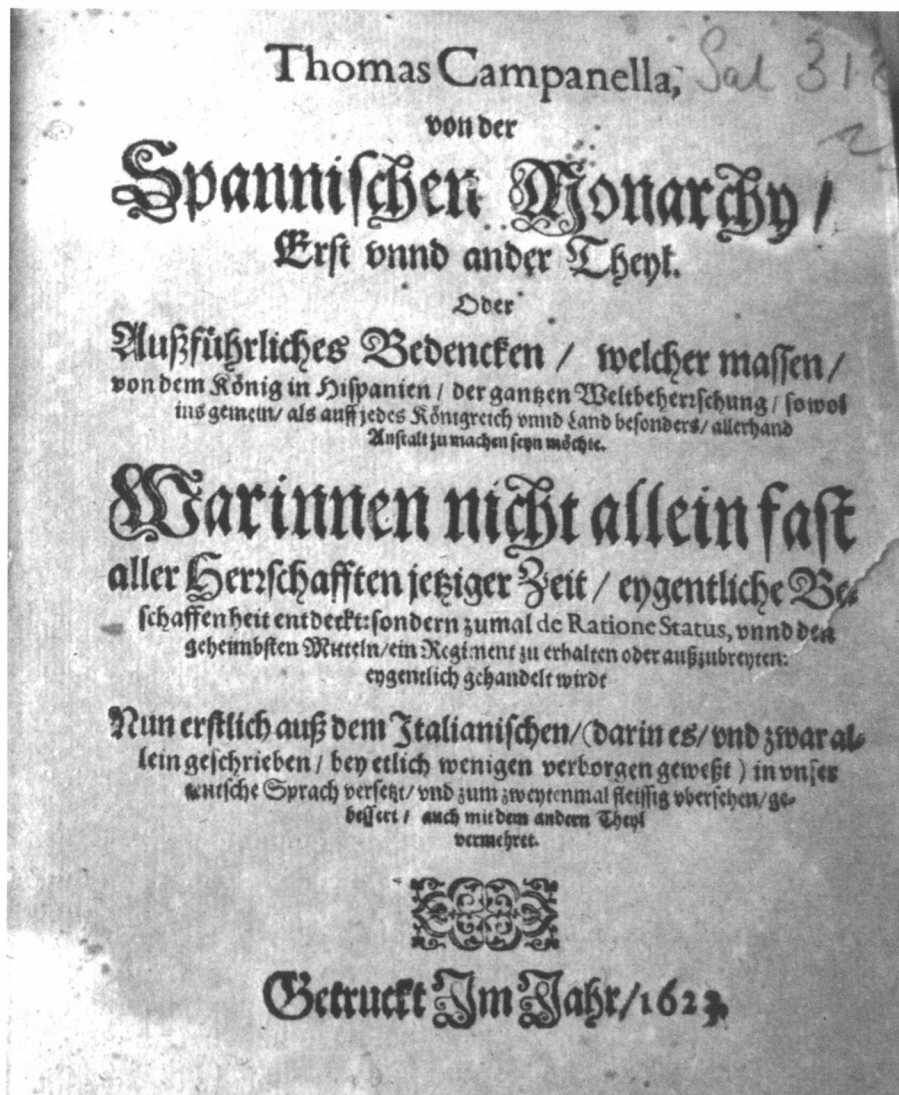 Thomas Campanella, Sal 31
von der
Spannischen Monarchy /
Erst vnnd ander Theyl.
Oder
Außführliches Bedencken / welcher massen /
von dem König in Hispanien / der gantzen Weltbeherrschung / sowol
ins gemein / als auff jedes Königreich vnnd Land besonders / allerhand
Anstalt zu machen seyn möchte.
Warinnen nicht allein fast
aller Herrschafften jetziger Zeit / eygentliche Be-
schaffenheit entdeckt: sondern zumal de Ratione Status, vnnd den
geheimbsten Mitteln / ein Regiment zu erhalten oder außzubreyten:
eygentlich gehandelt wirdt
Nun erstlich auß dem Italianischen / (darin es / vnd zwar al-
lein geschrieben / bey etlich wenigen verborgen geweßt) in vnser
teutsche Sprach versetzt / vnd zum zweytenmal fleissig vbersehen / ge-
bessert / auch mit dem andern Theyl
vermehret.
Getruckt Im Jahr / 1623.